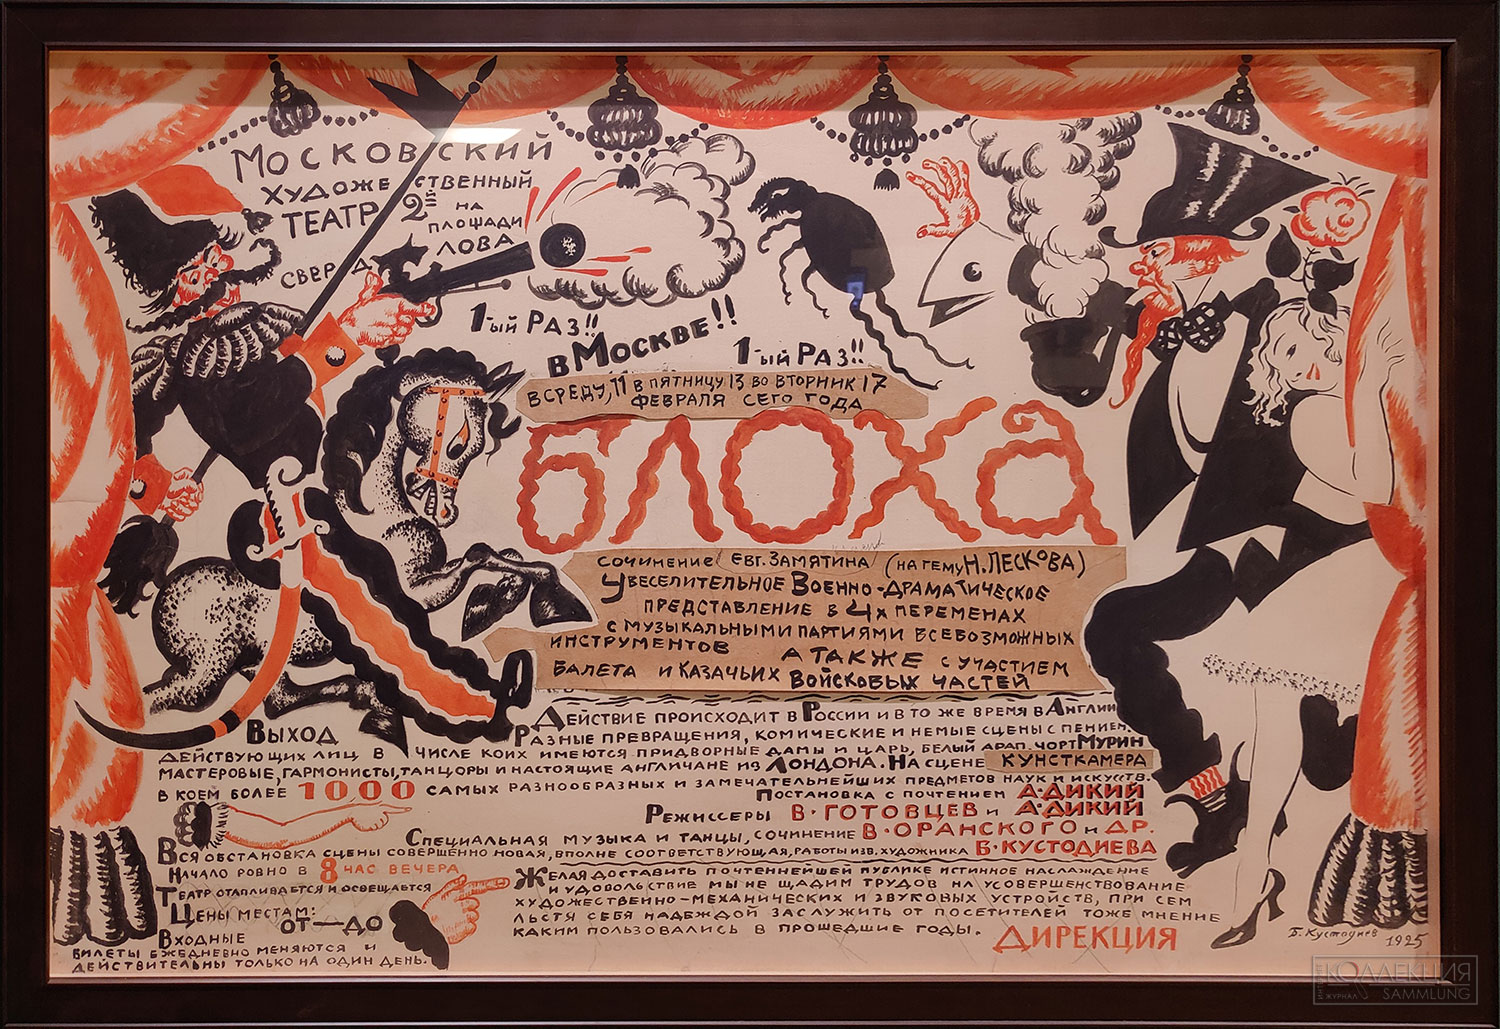 Московский
художественный
театр 2ой на
площади
Свердлова
1-ый раз!!
в Москве!!
1-ый раз!!
в среду, 11 в пятницу 13 во вторник 17
февраля сего года
Блоха
сочинение Евг. Замятина (на тему Н. Лескова)
Увеселительное Военно-драматическое
представление в 4х переменах
с музыкальными партиями всевозможных
инструментов а также с участием
балета и казачьих войсковых частей
Действие происходит в России и в то же время в Англии
Выход Разные превращения, комические и немые сцены с пением.
действующих лиц в числе коих имеются придворные дамы и царь, белый арап. чорт Мурин
мастеровые, гармонисты, танцоры и настоящие англичане из Лондона. На сцене кунсткамера
в коей более 1000 самых разнообразных и замечательнейших предметов наук и искусств.
Постановка с почтением А. Дикий
Режиссеры В. Готовцев и А. Дикий
Специальная музыка и танцы, сочинение В. Оранского и др.
Вся обстановка сцены совершенно новая, вполне соответствующая, работы изв. художника Б. Кустодиева
Начало ровно в 8 час вечера
Театр отапливается и освещается
Цены местам: от—до
Входные
билеты ежедневно меняются и
действительны только на один день.
Желая доставить почтеннейшей публике истинное наслаждение
и удовольствие мы не щадим трудов на усовершенствование
художественно-механических и звуковых устройств, при сем
льстя себя надеждой заслужить от посетителей тоже мнение
каким пользовались в прошедшие годы. Дирекция
Б. Кустодиев
1925
КОЛЛЕКЦИЯ
ЖУРНАЛ SAMMLUNG